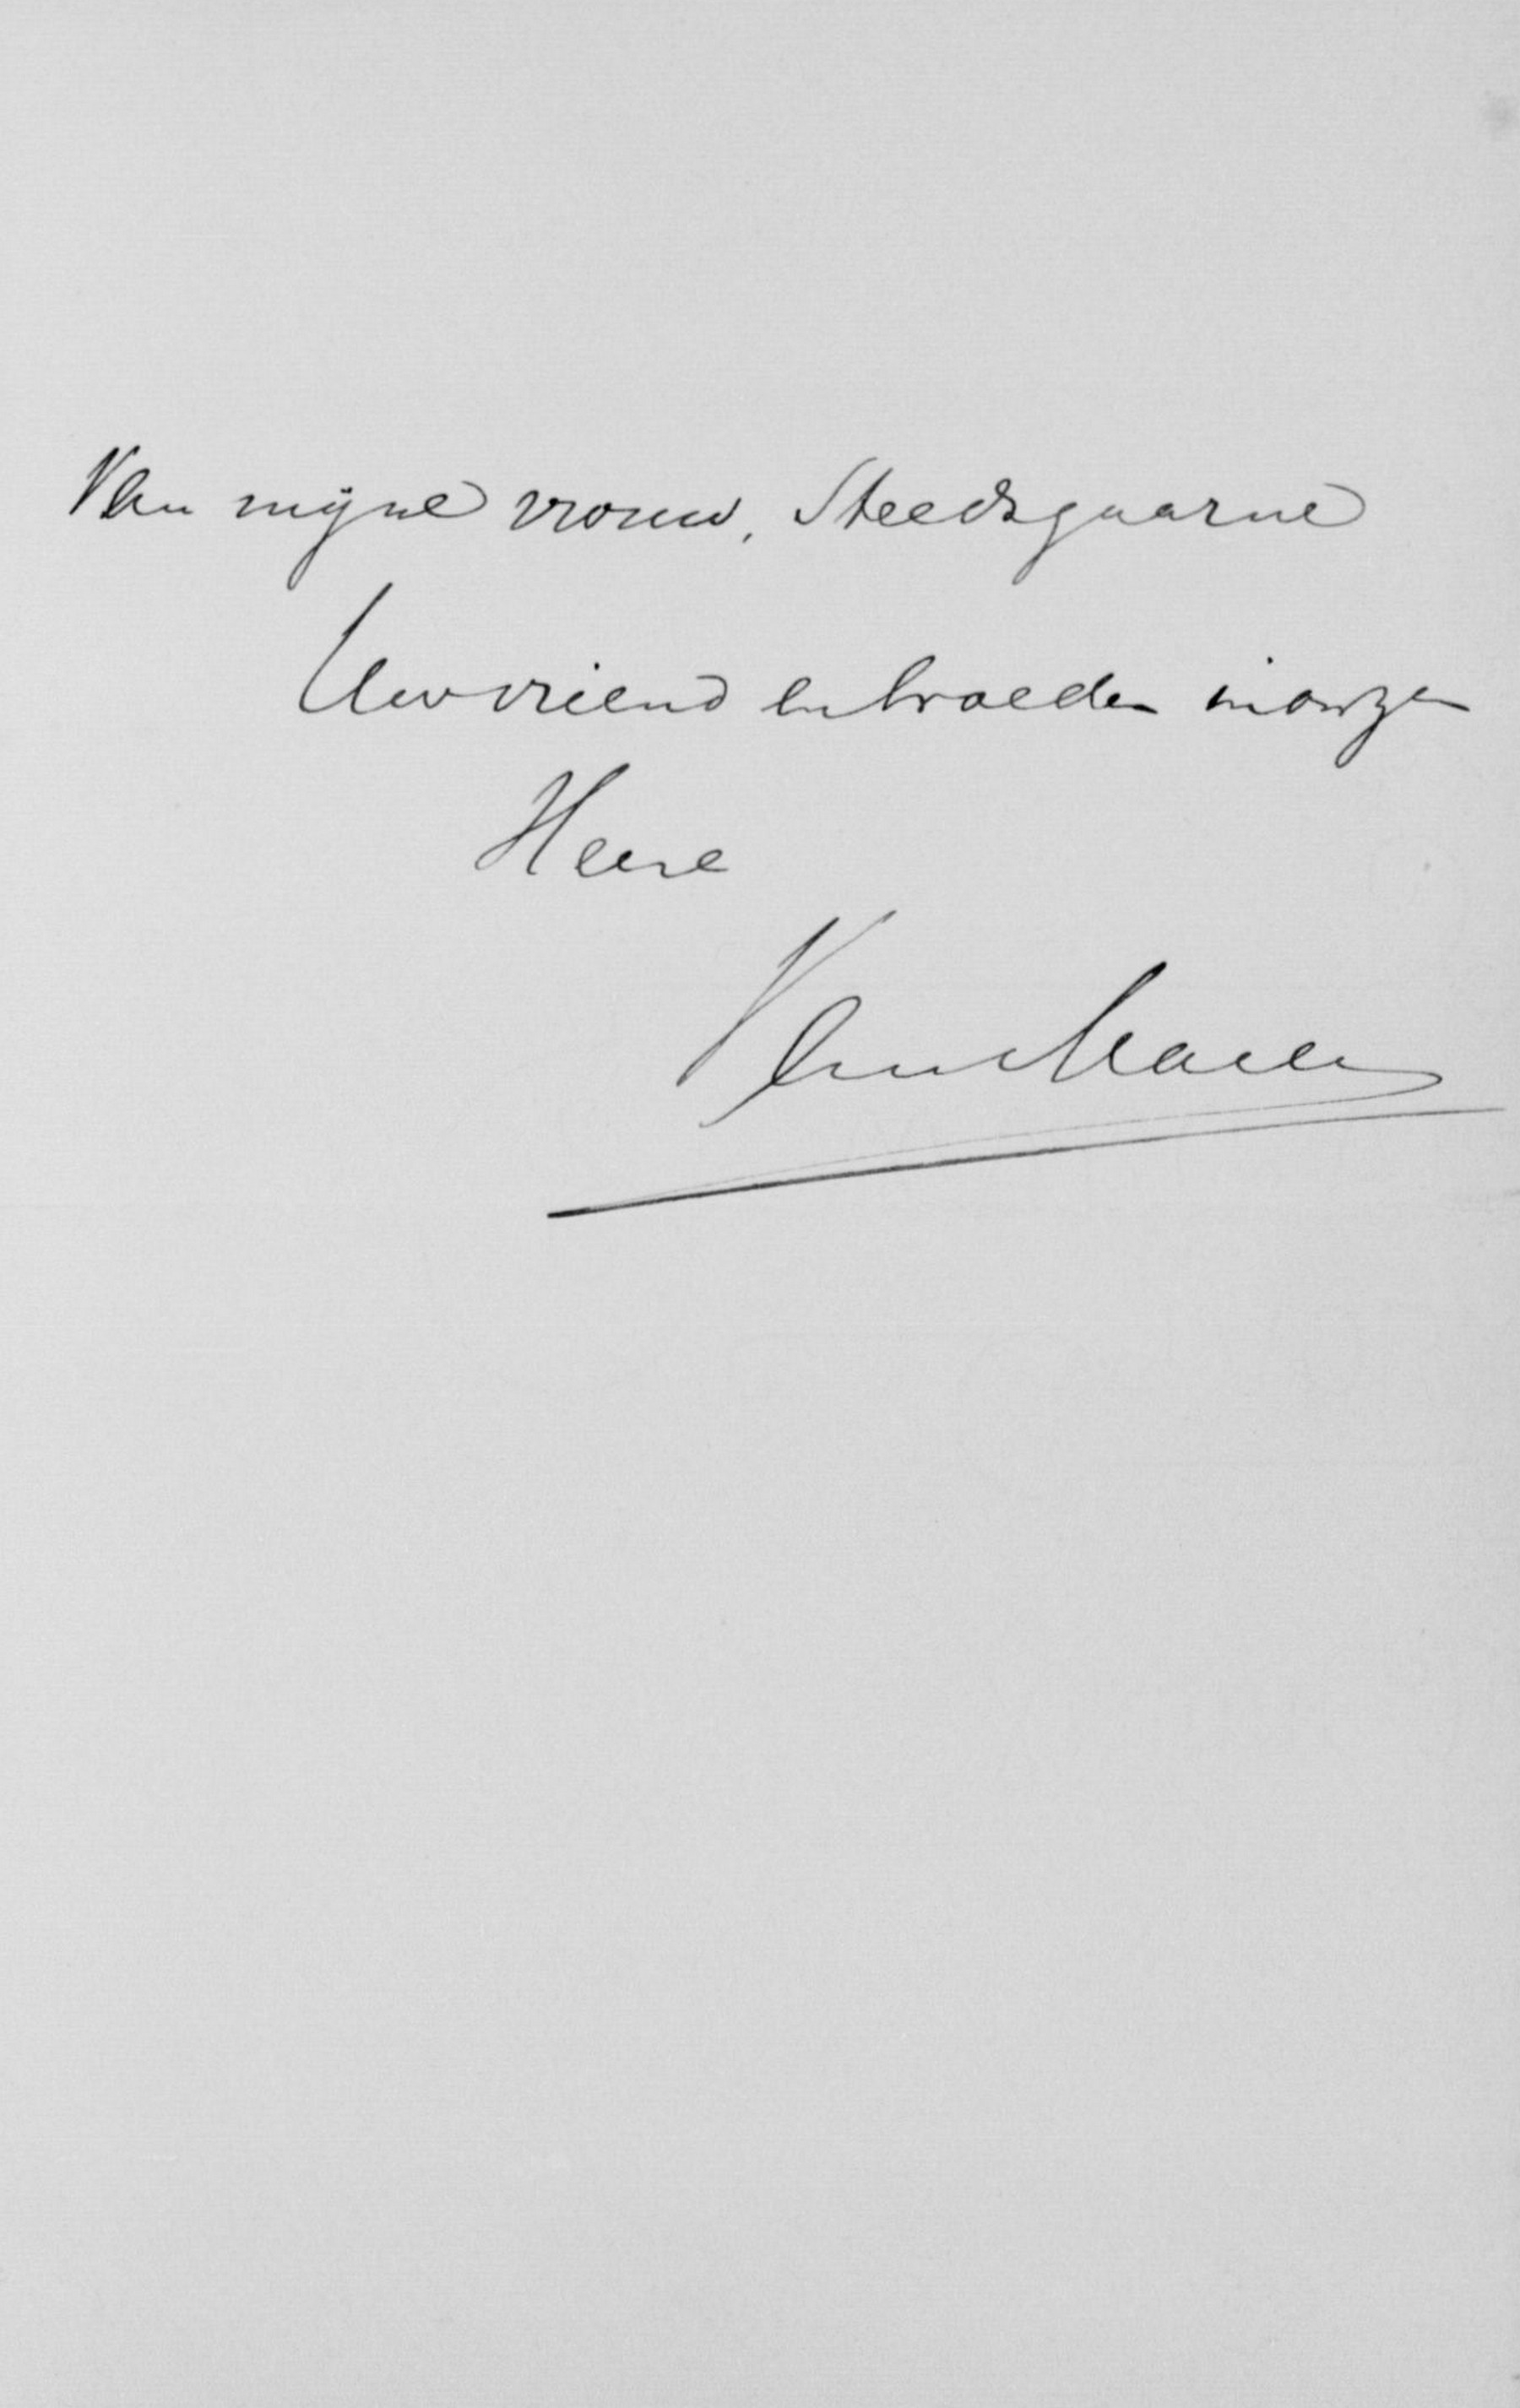 Van mijne vrouw. Steeds gaarne
Uw vriend en broeder in onzen
Heere